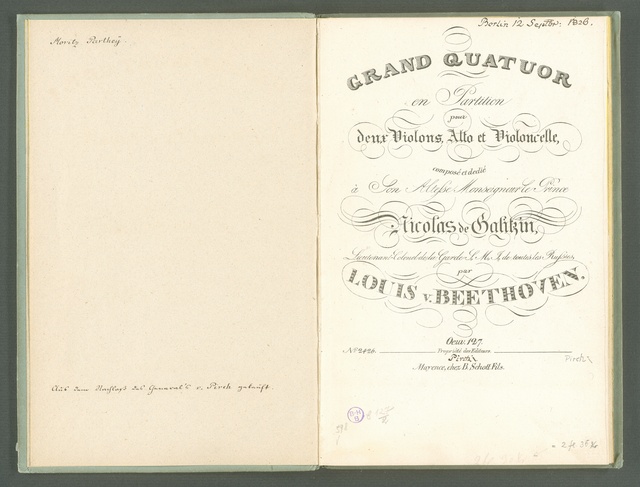 Moritz Parthey
Aus dem Nachlass des General's v. Pirch gekauft.
Berlin 12 Septbr. 1836.
GRAND QUATUOR
en Partition
pour
deux Violons, Alto et Violoncelle,
composé et dedié
à Son Altesse Monseigneur le Prince
Nicolas de Galitzin,
Lieutenant-Colonel de la Garde S. M. I. de toutes les Russies,
par
LOUIS v. BEETHOVEN.
Oeuv. 127.
No 2426.
Propriété des Editeurs
Pirch
Pirch
Mayence, chez B. Schott Fils.